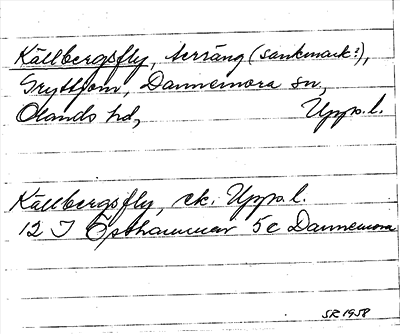 Källbergsfly, terräng (sankmark?),
Gryttjom, Dannemora sn,
Olands hd, Upps. l.
Källbergsfly, ek. Upps. l.
12 I Östhammar 5c Dannemora
SR 1958